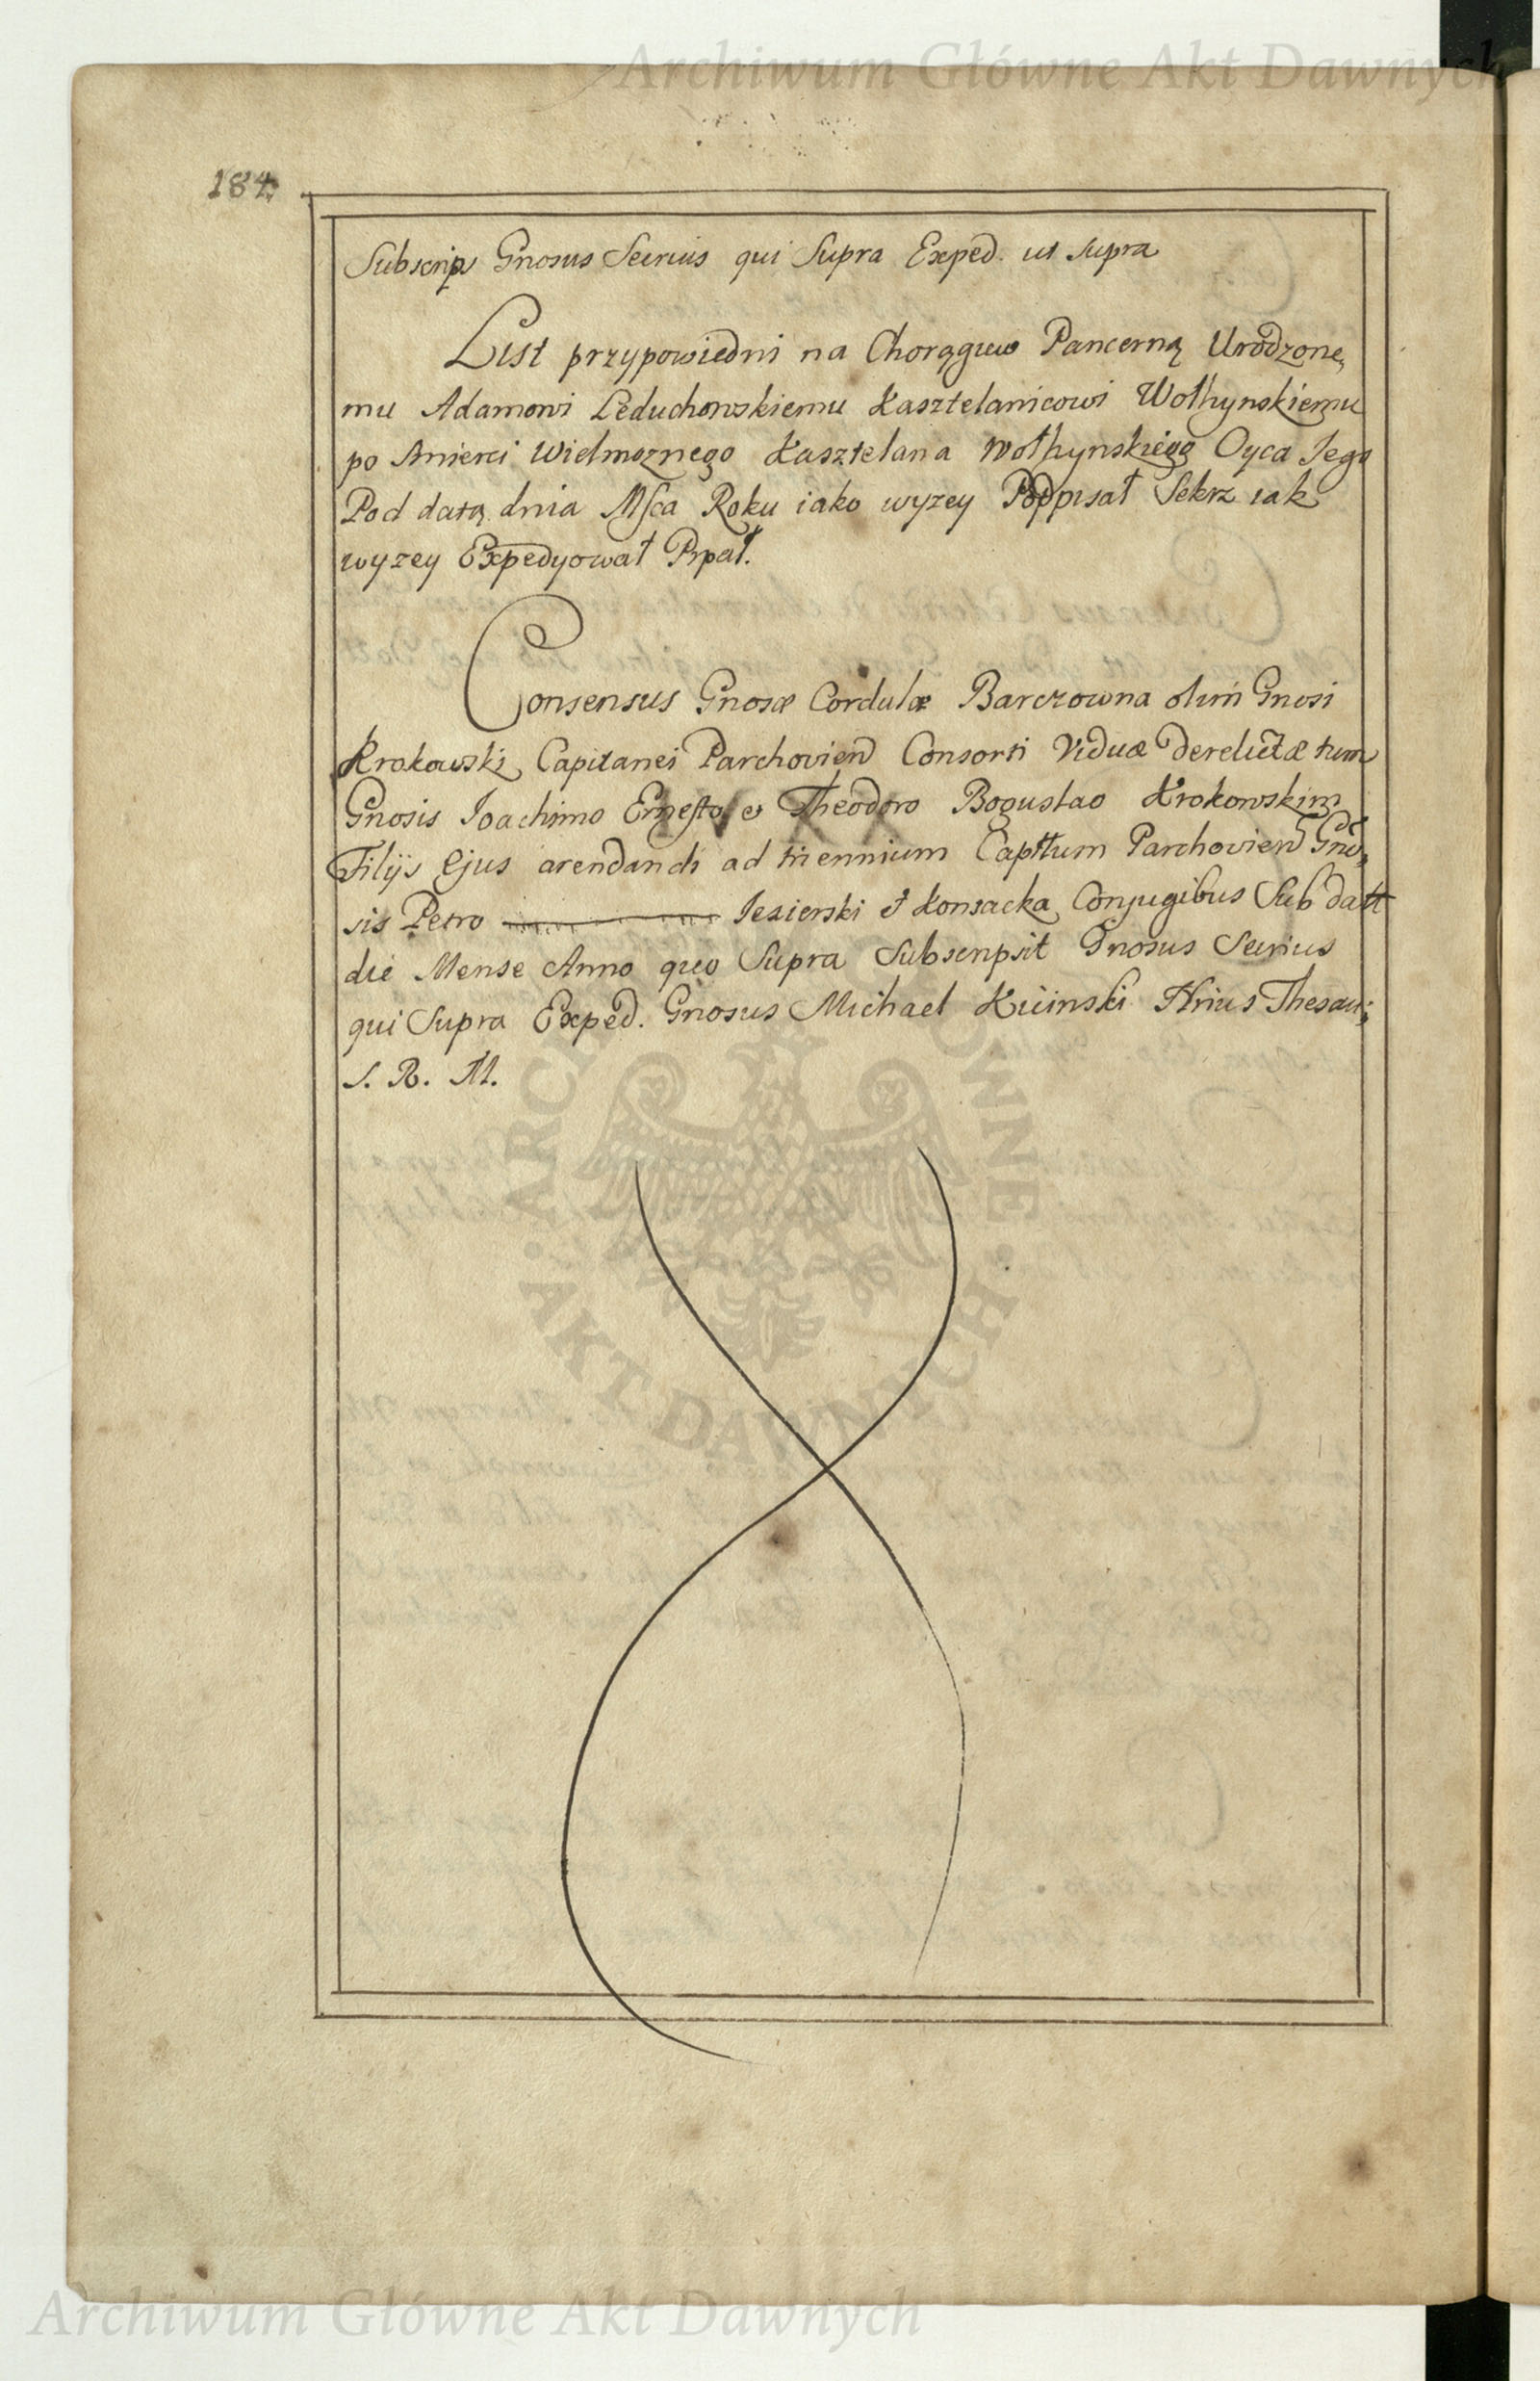 Archiwum Główne Akt Dawnych
184
Subscrips Gnosus Secrius qui Supra Exped. ut supra
List przypowiedni na Chorągiew Pancerną Urodzone,
mu Adamowi Leduchowskiemu Kasztelanicowi Wołhynskiemu
po Smierci Wielmoznego Kasztelana Wołhynskiego Oyca Jego
Pod datą dnia Msca Roku iako wyzey Podpisał Sekrz iak
wyzey Expedyował Prpał.
Consensus Gnosæ Cordulæ Barczowna olim Gnosi
Krokowski Capitanei Parchovien Consorti Viduæ derelictæ tum
Gnosis Joachimo Ernesto et Theodoro Bogusłao Krokowskim
Filijs Ejus arendandi ad triennium Capttum Parchovien Gno,
sis Petro Jezierski et Konsacka Conjugibus Sub datt
die Mense Anno quo Supra Subscripsit Gnosus Secrius
qui Supra Exped. Gnosus Michael Kicinski Ntrius Thesau,
S. R. M.
ARCHIWUM GŁÓWNE AKT DAWNYCH
Archiwum Główne Akt Dawnych